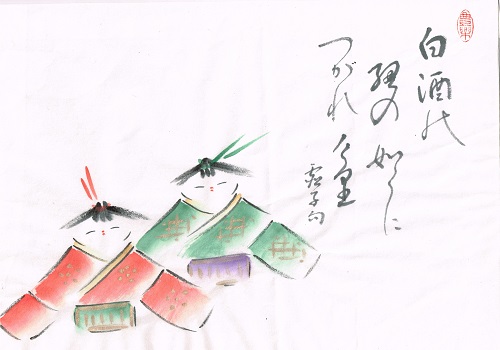 白酒の
紐の如くに
つがれけり
虚子句